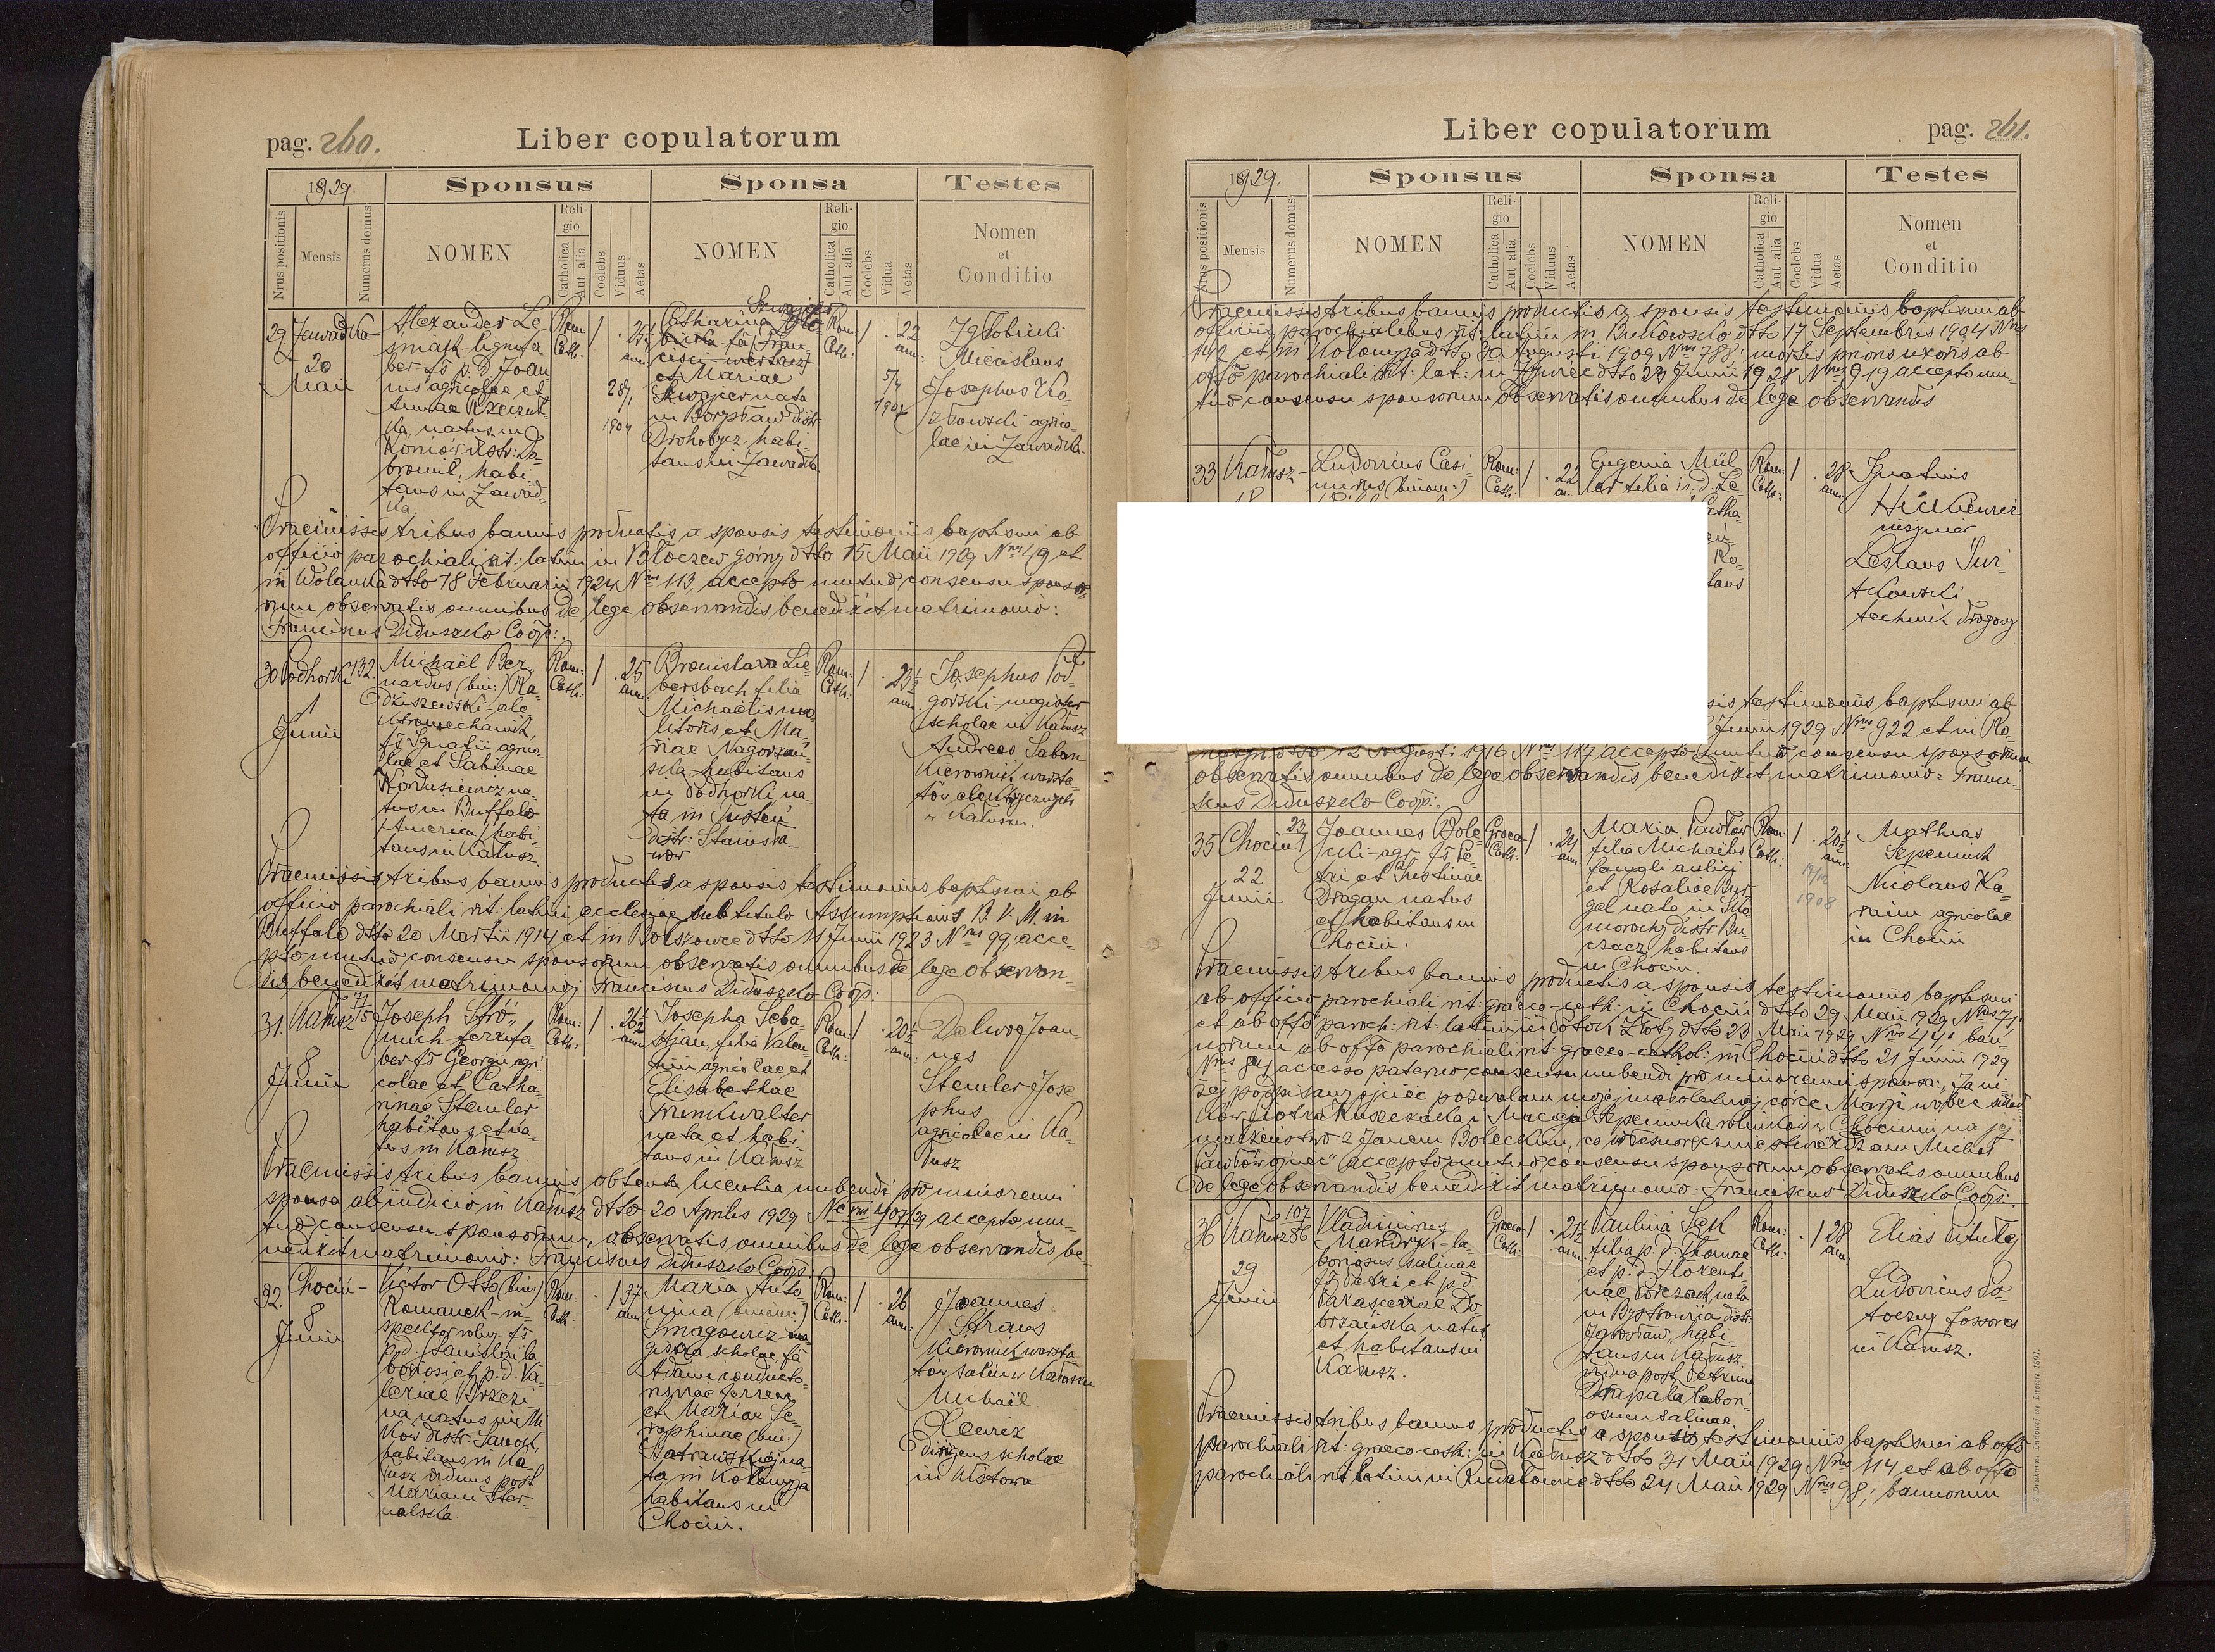 pag. 260.
Liber copulatorum
1929.
Sponsus
Sponsa
Testes
Nrus positionis
Mensis
Numerus domus
NOMEN
Religio
Catholica
Aut alia
Coelebs
Viduus
Aetas
NOMEN
Religio
Catholica
Aut alia
Coelebs
Vidua
Aetas
Nomen
et
Conditio
29
Zawadka
20
Maii
Alexander Le-
śniak lignifa
ber fs p. d. Joan
nis agricolae et
natus in
Koniów distr: Do-
bromil, habi-
tans in Zawad-
ka
Rom:
Cath:
1
25½
ann:
28/1
1904
Catharina
Szwajcer
et Mariae
Szwajcer nata
in Borysław distr:
Drohobycz, habi-
tans in Zawadka
Rom:
Cath:
1
22
ann:
5/4
1907
Mecislaus
Josephus Ko-
złowski agrico-
lae in Zawadka.
Praemissis tribus bannis productis a sponsis testimoniis baptismi ab
officio parochiali rit: latini in Błoczew górny dtto 15 Maii 1929 Nrus 49 et
in Wolanka dtto 18 Februarii 1924 Nrus 113, accepto mutuo consensu sponso-
rum observatis omnibus de lege observandis benedixit matrimonio:
Franciscus Diduszko Coop:.
30
Podhorki
132.
1
Junii
Michaël Ber-
nardus (bin:) Ra-
dziszewski-ele
ktromechanik,
fs Ignatii agrico-
lae et Sabinae
Kordasiewicz na-
tus in Buffalo
(America) habi-
tans in Kałusz
Rom:
Cath:
1
25
ann:
Bronislava Lie-
bersbach filia
Michaëlis mo-
litoris et Ma-
riae Nagorzań-
ska habitans
in Podhorki na-
ta in
distr: Stanisła-
wów
Rom:
Cath:
1
23½
ann:
Josephus Pod-
górski-magister
scholae in Kałusz
Andreas Saban
kierownik warszta-
tów elektrycznych
w Kałuszu.
Praemissis tribus bannis productis a sponsis testimoniis baptismi ab
officio parochiali rit: latini ecclesiae sub titulo Assumptionis B. V. M. in
Buffalo dtto 20 Martii 1914 et in Bołszowce dtto 11 Junii 1923 Nrus 99, acce-
pto mutuo consensu sponsorum observatis omnibus de lege observan-
dis benedixit matrimonio; Franciscus Diduszko Coop:
31
Kałusz
8
Junii
Joseph Strö-
mich ferrifa-
ber fs Georgii agri
colae et Catha-
rinae Stemler
habitans et na-
tus in Kałusz
Rom:
Cath:
1
26½
ann:
Josepha Seba-
stjan, filia Valen-
tini agricolae et
Elisabethae
Trinkwalter
nata et habi
tans in Kałusz
Rom:
Cath:
1
20½
ann:
Delwog Joan-
nes
Stemler Jose
phus
agricolae in Ka-
łusz
Praemissis tribus bannis, obtenta licentia nubendi pro minorenni
sponsa ab judicio in Kałusz dtto 20 Aprilis 1929 Nc VIII 407/29 accepto mu-
tuo consensu sponsorum, observatis omnibus de lege observandis be-
nedixit matrimonio: Franciscus Diduszko Coop:
32.
Chocin-
8
Junii
Victor Otto (bin:)
Romanek-in-
spektor rolny-fs
p. d. Stanislai la
boriosi et p. d. Va-
leriae Brzezi
na natus in
distr: Sanok,
habitans in Ka
łusz viduus post
Mariam Ster-
nalska.
Rom:
Cath:
1
37
ann:
Maria Anto-
nina (binom:)
Smagowicz ma
gistra scholae, fa
Adami conducto-
ris viae ferreae
et Mariae Se-
raphinae (bin:)
na-
ta in Kołomyja
habitans in
Chocin.
Rom:
Cath:
1
26
ann:
Joannes
Straus
kierownik warszta
tów salin w Kałuszu
Michaël
dirigens scholae
in Wistowa
Liber copulatorum
pag. 261.
1929.
Sponsus
Sponsa
Testes
Nrus positionis
Mensis
Numerus domus
NOMEN
Religio
Catholica
Aut alia
Coelebs
Viduus
Aetas
NOMEN
Religio
Catholica
Aut alia
Coelebs
Vidua
Aetas
Nomen
et
Conditio
Praemissis tribus bannis productis a sponsis testimoniis baptismi ab
officiis parochialibus rit: latini in Bukowsko dtto 17 Septembris 1904 Nrus
142 et in Kołomyja dtto 30 Augusti 1909 Nrus 788; mortis prioris uxoris ab
offo parochiali rit: lat: in Żurawec dtto 23 Junii 1928 Nrus 919 accepto mu-
tuo consensu sponsorum observatis omnibus de lege observandis
33
Kałusz-
Ludovicus Casi-
mirus (binom:)
Rom:
Cath:
1
22
a.
Eugenia Mül
ler filia p. d. Le-
Rom:
Cath:
1
28
ann:
Ignatius
inżynier
Leslaus Jur-
kowski
technik drogowy
sis testimoniis baptismi ab
Junii 1929 Nrus 922 et in Ro-
dtto 12 Augusti 1916 Nrus 117 accepto mutuo consensu sponsorum
observatis omnibus de lege observandis benedixit matrimonio: Franci-
scus Diduszko Coop:.
35
Chocin
23
22
Junii
Joannes Bole-
cki-agr: fs Pe-
tri et Justinae
Dragan natus
et habitans in
Chocin.
Graeco
Cath:
1
24
ann:
Maria Pawłów
filia Michaëlis
famuli aulici
et Rosaliae Bur-
gel nata in
distr: Bu-
czacz habitans
in Chocin.
Rom:
Cath:
1
20½
ann:
1908
Mathias
Stepeniuk
Nicolaus Ka-
raim agricolae
in Chocin
Praemissis tribus bannis productis a sponsis testimoniis baptismi
ab officio parochiali rit: graeco-cath: in Chocin dtto 29 Maii 1929 Nrus 71;
et ab offo paroch: rit: latini in Potok Złoty dtto 23 Maii 1929 Nrus 414; ban-
norum ab offo parochiali rit: graeco-cathol: in Chocin dtto 21 Junii 1929
Nrus 84; accesso paterno consensu nubendi pro minorenni sponsa: „Ja ni-
żej podpisany ojciec pozwalam mojej małoletniej córce Marji wobec świad-
ków Piotra i Macieja Stepeniuka rolników w Chocinie na jej
małżeństwo z Janem Boleckim, co własnoręcznie stwierdzam Michał
Pawłów ojciec" accepto mutuo consensu sponsorum, observatis omnibus
de lege observandis benedixit matrimonio: Franciscus Diduszko Coop:.
36
Kałusz
107
86
29
Junii
Vladimirus
Mandryk-la-
boriosus salinae
fs Petri et p. d.
Parasceviae Do-
brzańska natus
et habitans in
Kałusz.
Graeco-
Cath:
1
21½
ann:
Paulina Sęk
filia p. d. Thomae
et p. d. Florenti-
nae Pórczak, nata
in Bystrowica distr:
Jarosław, habi-
tans in Kałusz.
vidua post Petrum
Chrapała labori-
osum salinae.
Rom:
Cath:
1
28
ann.
Elias Pitulej
Ludovicus Po-
toczny fossores
in Kałusz.
Praemissis tribus bannis productis a sponsis testimoniis baptismi ab offo
parochiali rit: graeco-cath: in Kałusz dtto 31 Maii 1929 Nrus 114 et ab offo
parochiali rit latini in Rudałowice dtto 24 Maii 1929 Nrus 98; bannorum
Z Drukarni Ludowej we Lwowie 1891.